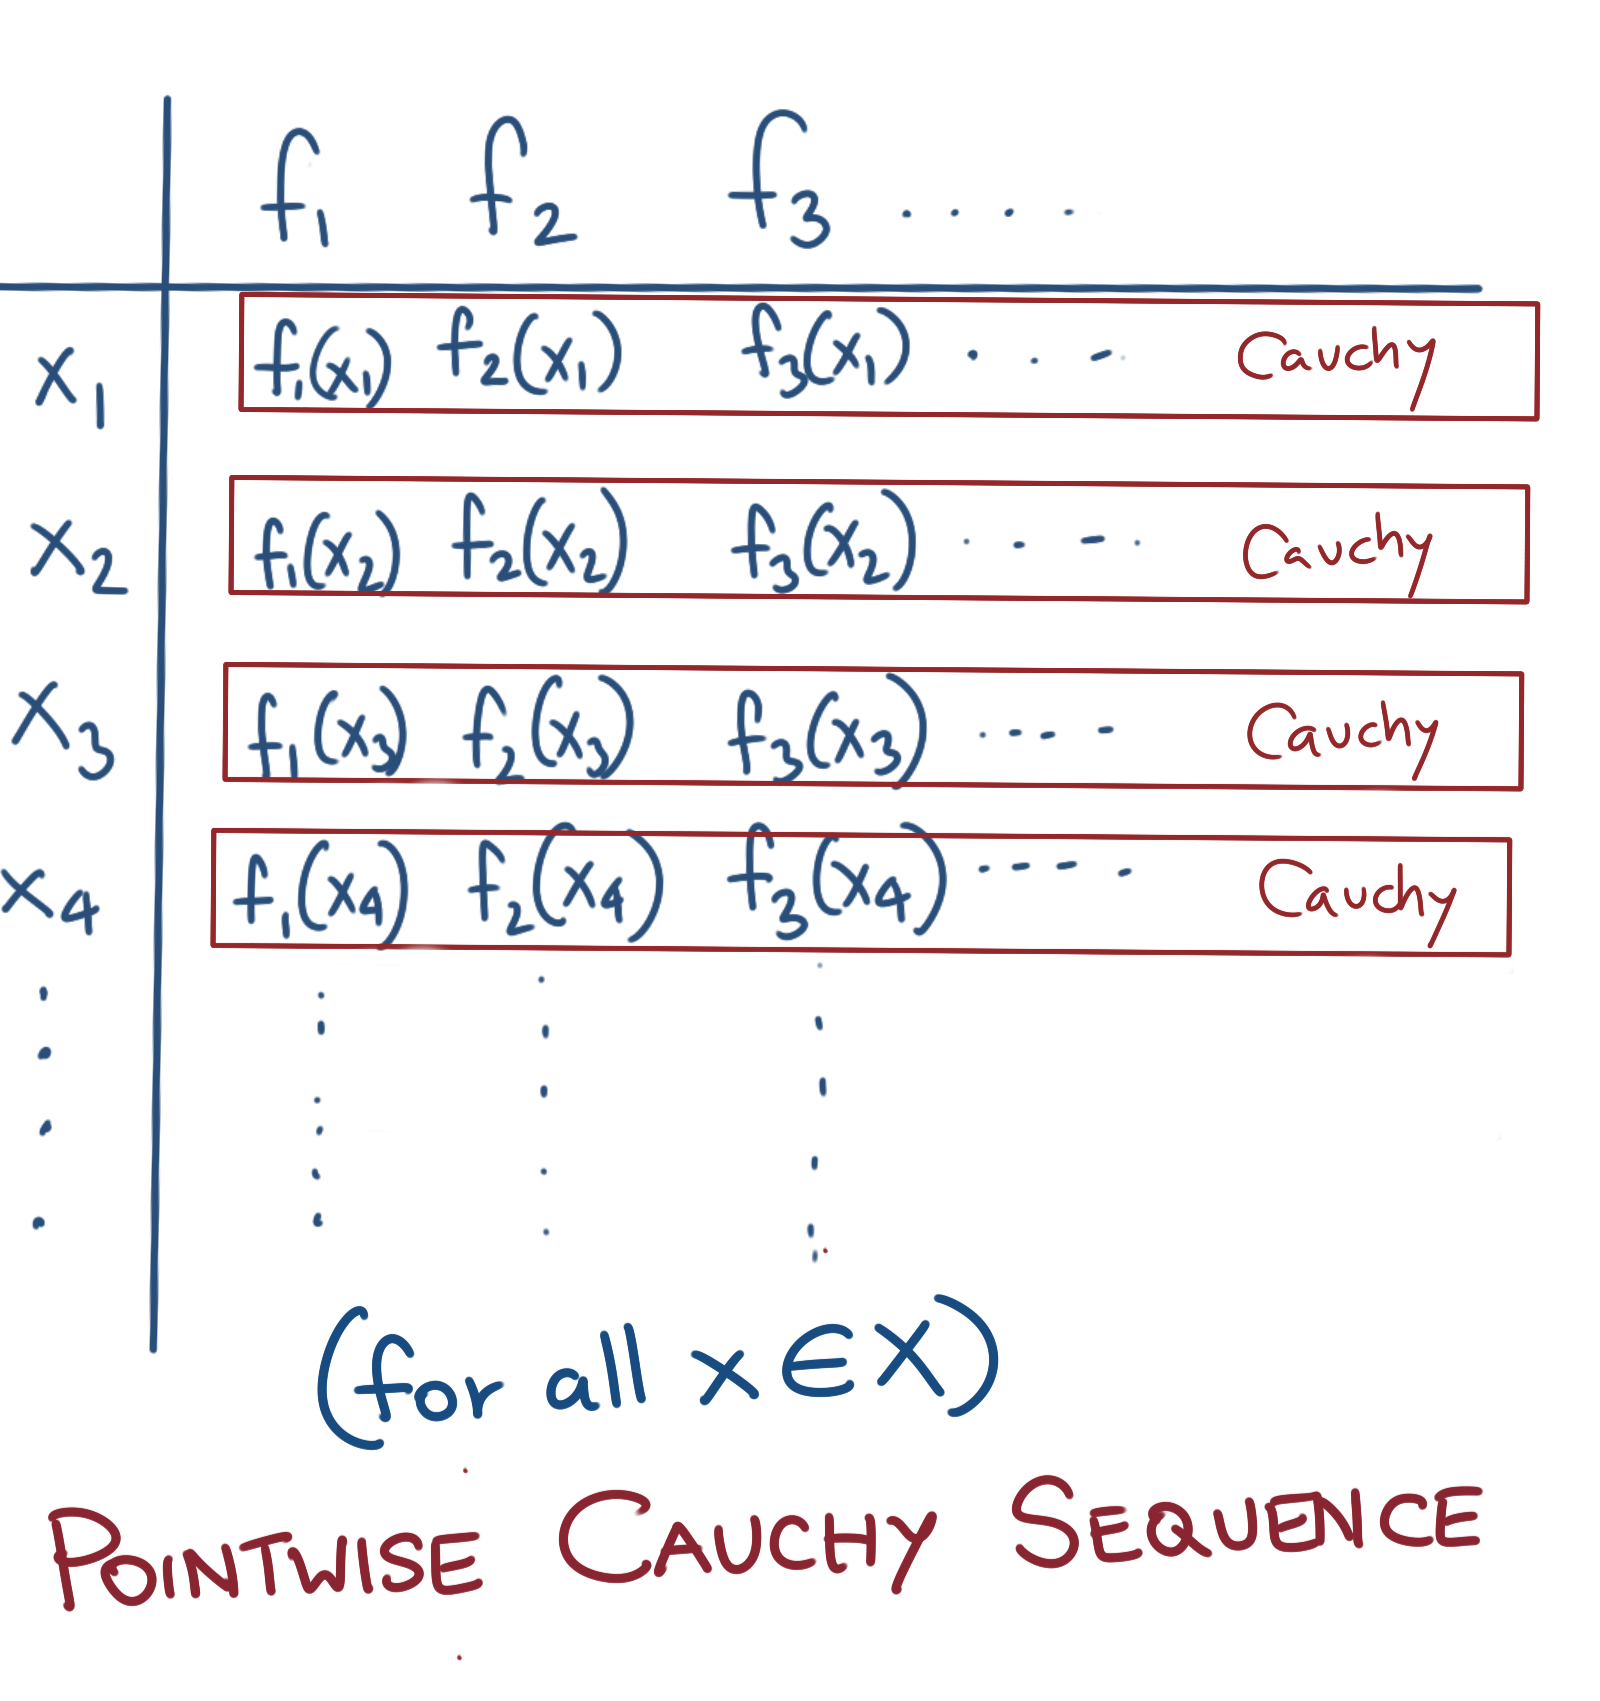 f₁ f₂ f₃ ....
x₁ f₁(x₁) f₂(x₁) f₃(x₁) .... Cauchy
x₂ f₁(x₂) f₂(x₂) f₃(x₂) .... Cauchy
x₃ f₁(x₃) f₂(x₃) f₃(x₃) .... Cauchy
x₄ f₁(x₄) f₂(x₄) f₃(x₄) .... Cauchy
(for all x ∈ X)
POINTWISE CAUCHY SEQUENCE